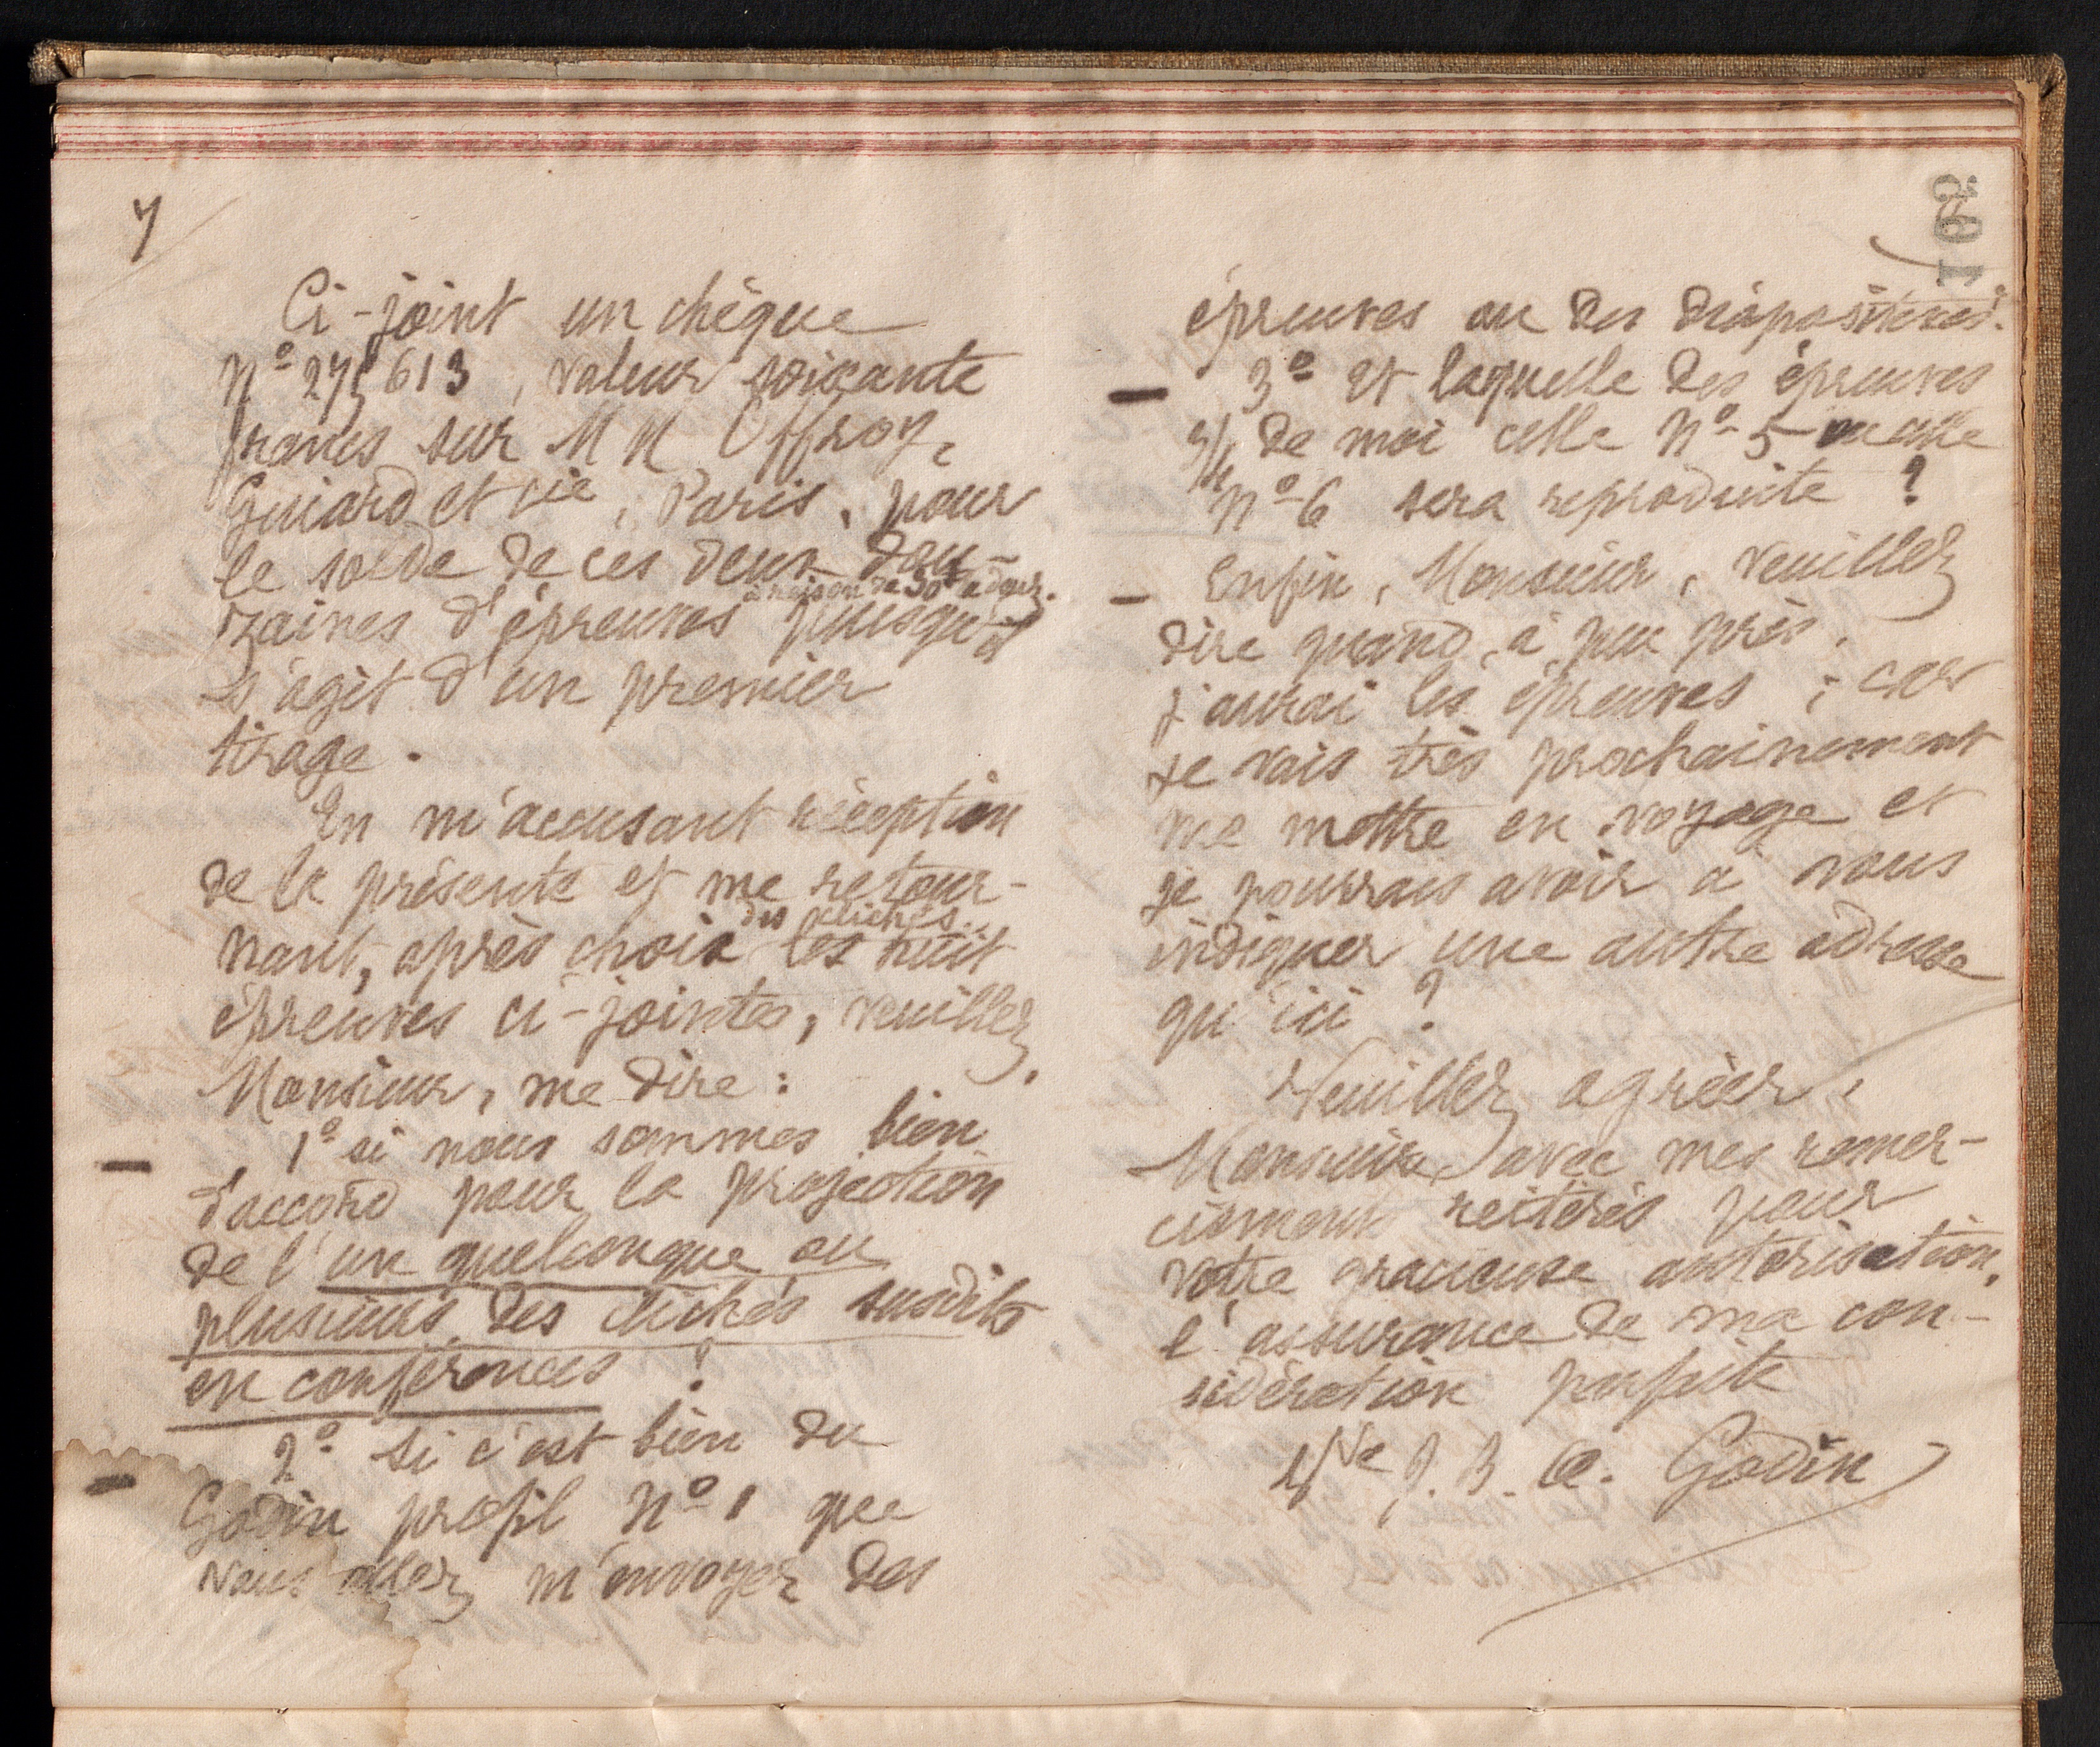 7
Ci-joint un chèque
No 275613, valeur soixante
francs sur MM Offroy,
Guiard et cie, Paris, pour
le solde de ces deux dou-
à raison de 30f la douz.
zaines d'épreuves puisqu'il
s'agit d'un premier
tirage.
En m'accusant réception
de la présente et me retour-
des clichés
nant, après choix les huit
épreuves ci-jointes, veuillez,
Monsieur, me dire :
– 1o si nous sommes bien
d'accord pour la projection
de l'un quelconque ou
plusieurs des clichés susdits
en conférences ?
– 2o si c'est bien du
Godin profil No 1 que
vous allez m'envoyer des
162
épreuves ou des diapositives.
– 3o et laquelle des épreuves
3/4 de moi celle No 5 ou celle
No 6 sera reproduite ?
– Enfin, Monsieur, veuillez
dire quand, à peu près,
j'aurai les épreuves ; car
je vais très prochainement
me mettre en voyage et
je pourrais avoir à vous
indiquer une autre adresse
qu'ici ?
Veuillez agréer,
Monsieur, avec mes remer-
ciements réitérés pour
votre gracieuse autorisation,
l'assurance de ma con-
sidération parfaite
Vve J. B. A. Godin